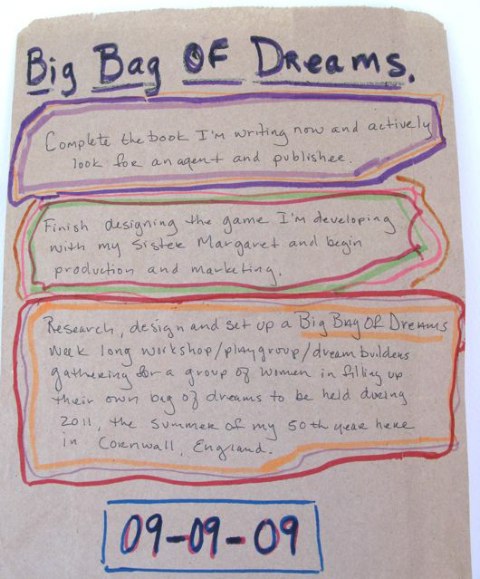 Big Bag OF Dreams.
Complete the book I'm writing now and actively
look for an agent and publisher.
Finish designing the game I'm developing
with my Sister Margaret and begin
production and marketing.
Research, design and set up a Big Bag OF Dreams
week long workshop/playgroup/dream builders
gathering for a group of women in filling up
their own bag of dreams to be held during
2011, the summer of my 50th year here
in Cornwall, England.
09-09-09